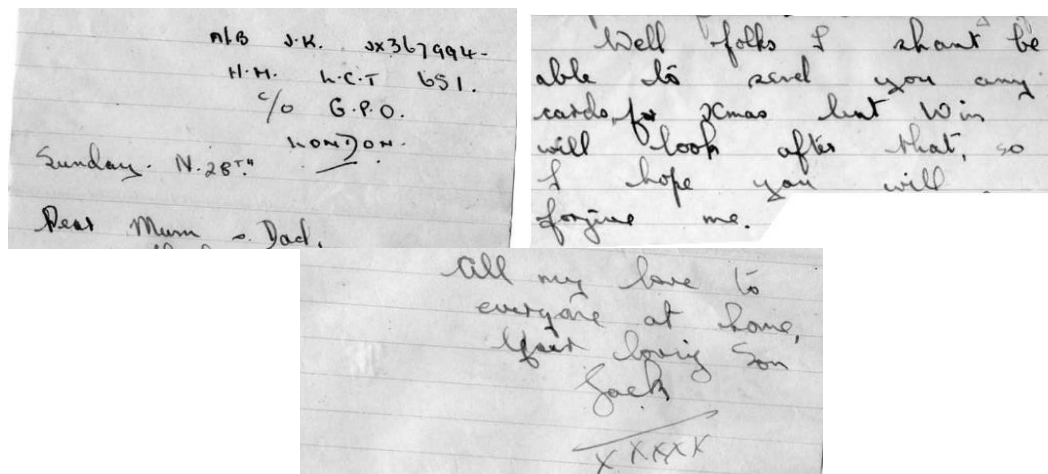 A/B J.K. JX367994-
H.M. L.C.T 651.
c/o G.P.O.
LONDON.
Sunday. N.28TH.
Dear Mum & Dad,
Well folks I shant be
able to send you any
cards, for Xmas but Win
will look after that, so
I hope you will
forgive me.
All my love to
everyone at home,
Your loving Son
Jack
X X X X X